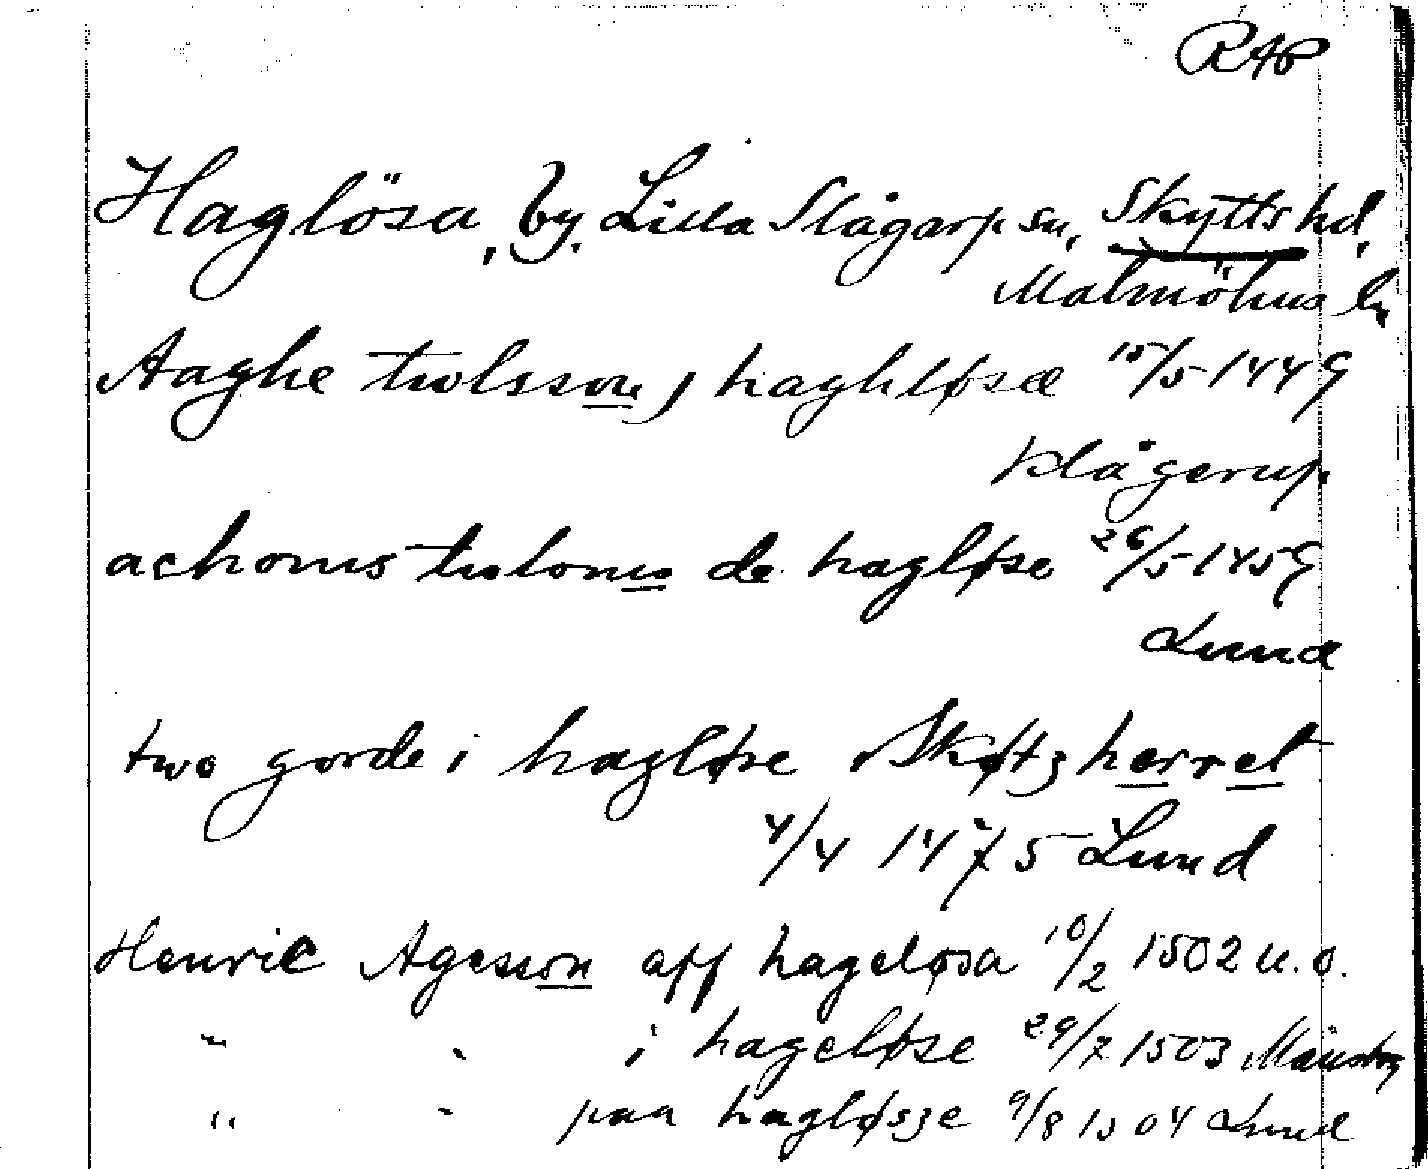 RAP
Haglösa, by. Lilla Slågarp sn, Skytts hd,
Malmöhus ln
Aaghe twlsson j haghløsæ 15/5 1449
Klågerup
achonis twlonis de hagløse 26/5 1459
Lund
two gorde i hagløse Skøtz herret
4/4 1475 Lund
Henric Agesson aff hageløsa 10/2 1502 u.o.
" " i hageløse 29/7 1503
" " paa hagløsze 9/8 1504 Lund